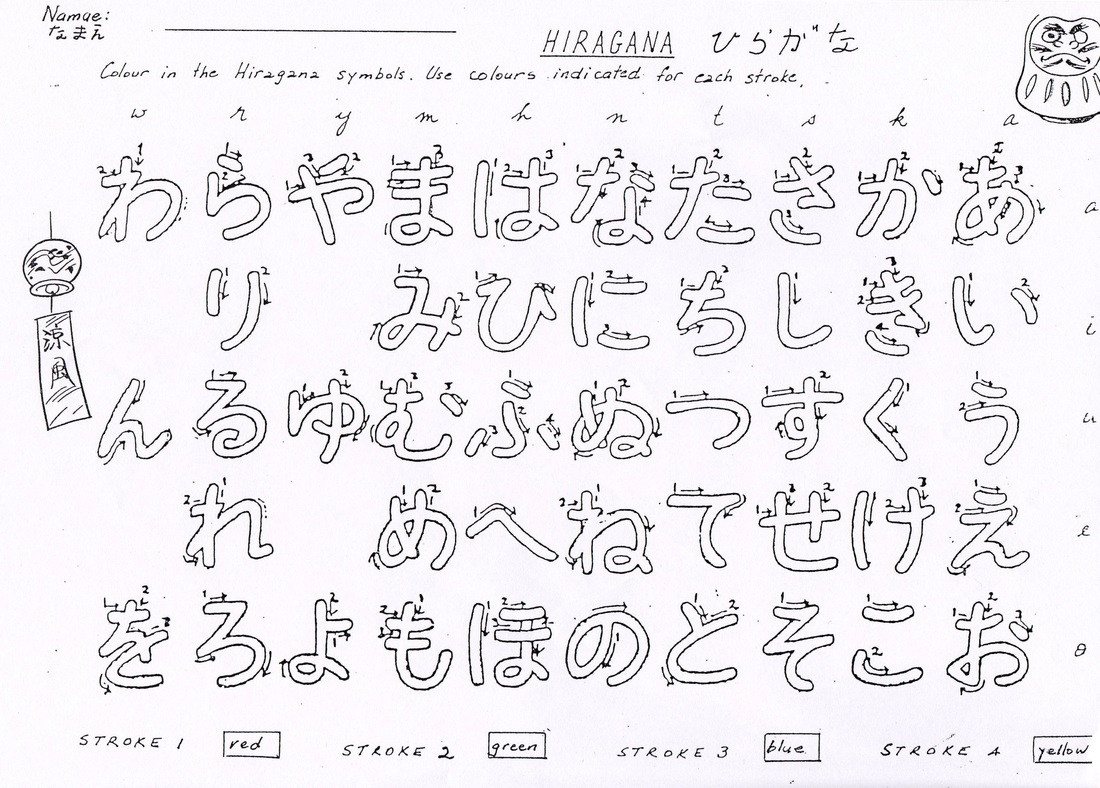 Namae:
なまえ
HIRAGANA ひらがな
Colour in the Hiragana symbols. Use colours indicated for each stroke.
w r y m h n t s k a
わ ら や ま は な た さ か あ a
り み ひ に ち し き い i
ん る ゆ む ふ ぬ つ す く う u
れ め へ ね て せ け え e
を ろ よ も ほ の と そ こ お o
涼風
STROKE 1 red STROKE 2 green STROKE 3 blue STROKE 4 yellow